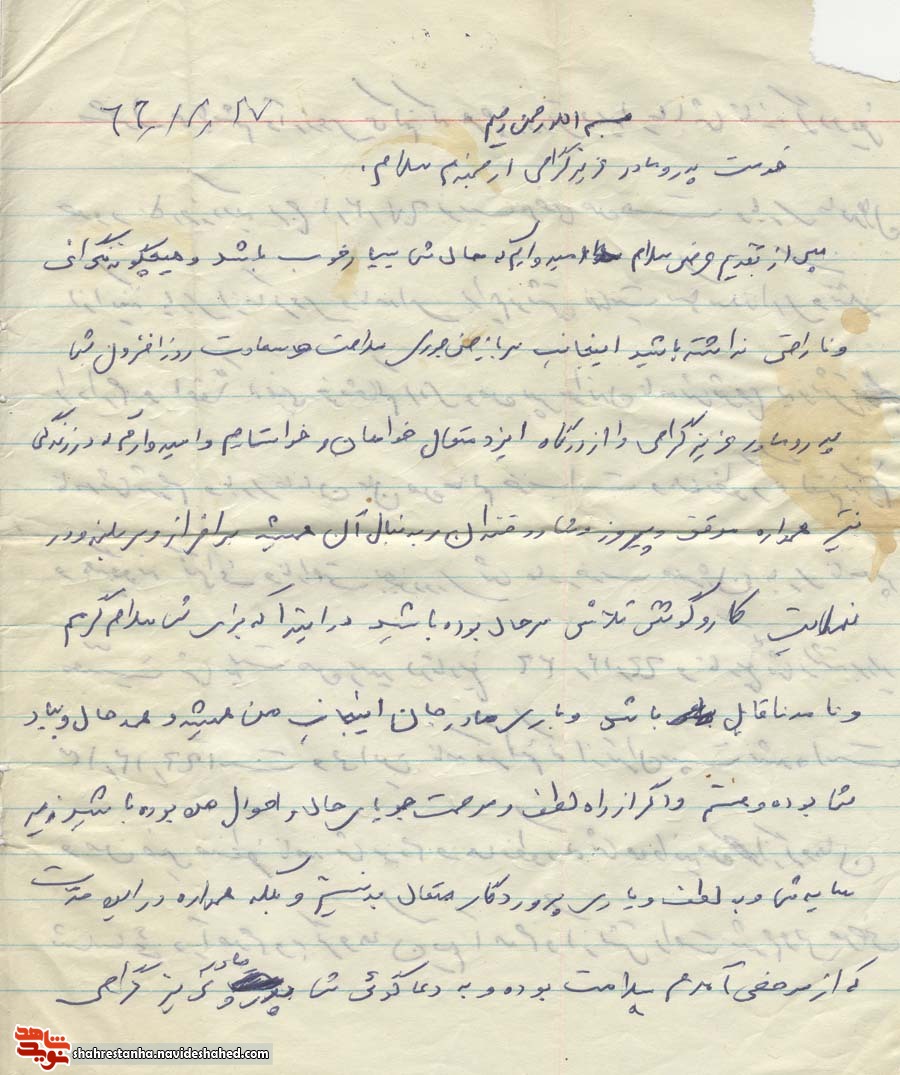 بسم الله رحمن رحیم
خدمت پدر و مادر عزیز گرامی ارجمندم سلام.
پس از تقدیم عرض سلام امیدوارم که حال شما بسیار خوب باشد و هیچگونه نگرانی
و ناراحتی نداشته باشید اینجانب سلامت سعادت روز افزون شما
پدر و مادر عزیز گرامی را از درگاه ایزد متعال خواهان و خواستارم و امیدوارم که در زندگی
نیز همواره موفق و پیروز و شاد و خندان و بدنبال آن همیشه سرافراز و سربلند و در
فعالیت کار و کوشش تلاش سرحال بوده باشید در ابتدا که برای شما سلام گرم
و نامه ناقابل باشی و باری مادر جان اینجانب من همیشه و همه حال و بیاد
شما بوده و هستم و اگر از راه لطف و مرحمت جویای حال و احوال من بوده باشید زیر
سایه شما و به لطف و یاری پروردگار متعال بد نیستم و بلکه همواره در این مدت
که از مرخصی آمدم سلامت بوده و به دعا گوئی شما مادر عزیز گرامی
شاهد
نوید
shahrestanha.navideshahed.com